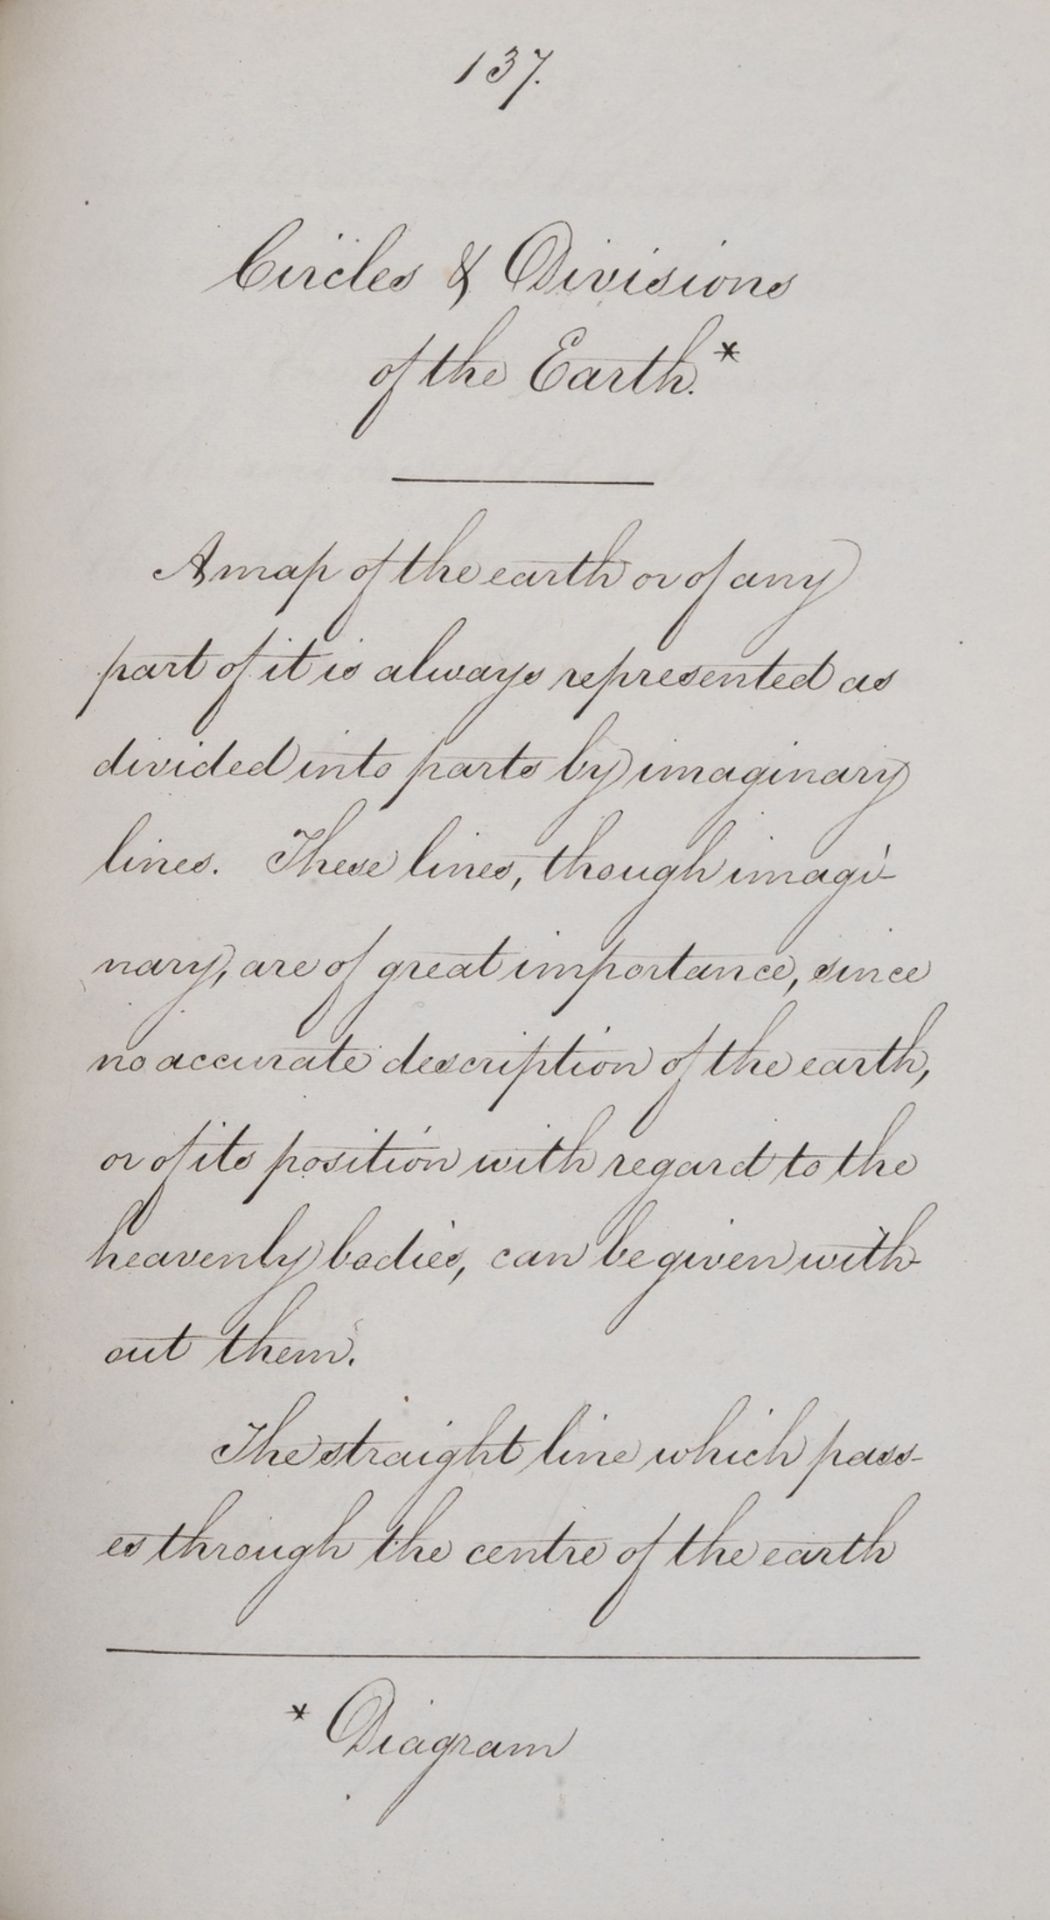 137.
Circles & Divisions
of the Earth.*
A map of the earth or of any
part of it is always represented as
divided into parts by imaginary
lines. These lines, though imagi-
nary, are of great importance, since
no accurate description of the earth,
or of its position with regard to the
heavenly bodies, can be given with-
out them.
The straight line which pass-
es through the centre of the earth
* Diagram